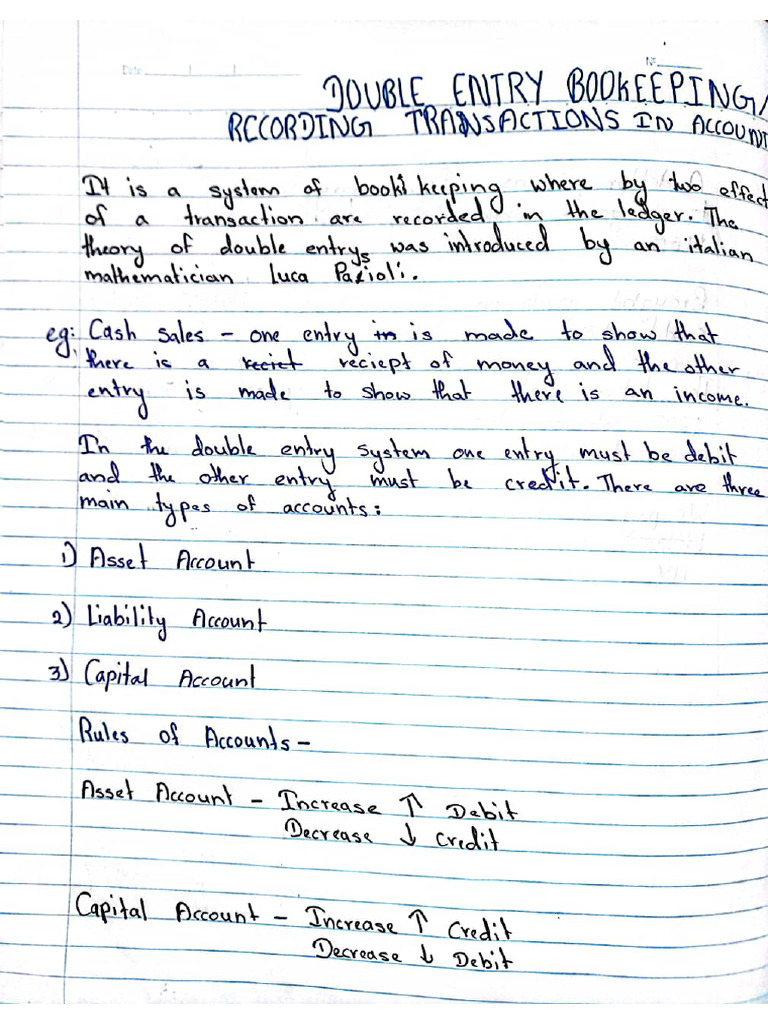 Date
Nº
DOUBLE ENTRY BOOKEEPING/
RECORDING TRANSACTIONS IN ACCOUNT
It is a system of book keeping where by two effect
of a transaction are recorded in the ledger. The
theory of double entrys was introduced by an italian
mathematician Luca Pacioli.
eg: Cash sales - one entry in is made to show that
there is a reciet reciept of money and the other
entry is made to show that there is an income.
In the double entry system one entry must be debit
and the other entry must be credit. There are three
main types of accounts:
1) Asset Account
2) Liability Account
3) Capital Account
Rules of Accounts -
Asset Account - Increase ↑ Debit
Decrease ↓ Credit
Capital Account - Increase ↑ Credit
Decrease ↓ Debit